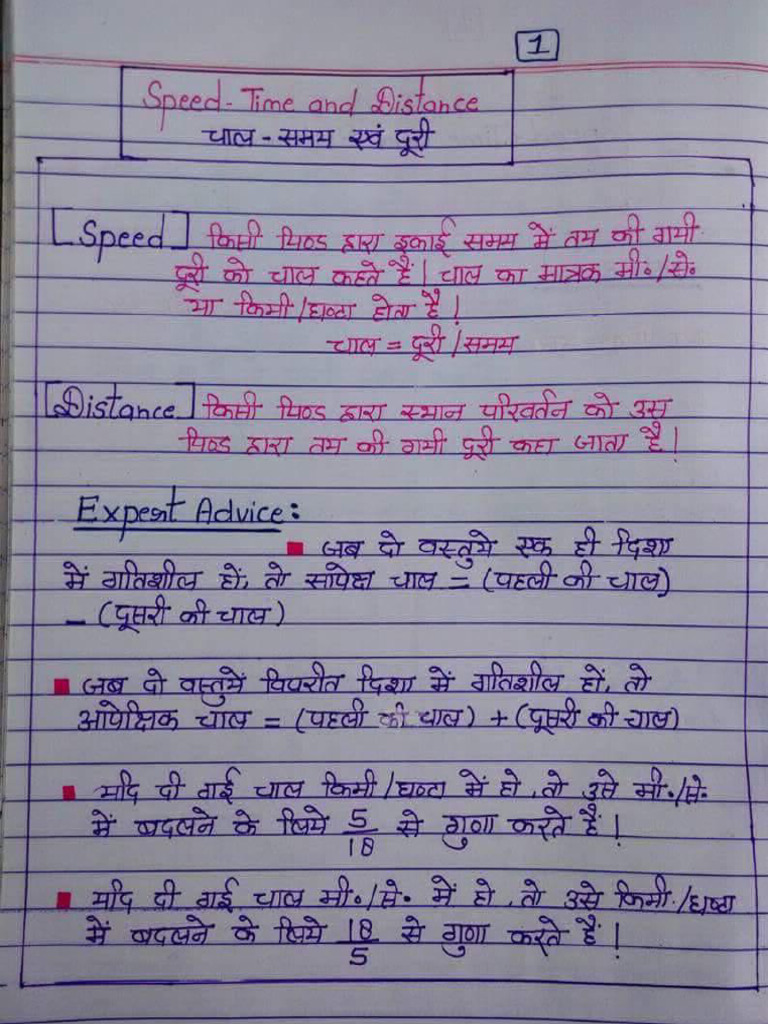 1
Speed-Time and Distance
चाल - समय एवं दूरी
[Speed] किसी पिण्ड द्वारा इकाई समय में तय की गयी
दूरी को चाल कहते हैं। चाल का मात्रक मी॰/से॰
या किमी/घण्टा होता है।
चाल = दूरी/समय
[Distance] किसी पिण्ड द्वारा स्थान परिवर्तन को उस
पिण्ड द्वारा तय की गयी दूरी कहा जाता है।
Expert Advice:
■ जब दो वस्तुयें एक ही दिशा
में गतिशील हों, तो सापेक्ष चाल = (पहली की चाल)
- (दूसरी की चाल)
■ जब दो वस्तुयें विपरीत दिशा में गतिशील हों, तो
आपेक्षिक चाल = (पहली की चाल) + (दूसरी की चाल)
■ यदि दी गई चाल किमी/घण्टा में हो, तो उसे मी॰/से॰
में बदलने के लिये 5/18 से गुणा करते हैं।
■ यदि दी गई चाल मी॰/से॰ में हो, तो उसे किमी/घण्टा
में बदलने के लिये 18/5 से गुणा करते हैं।